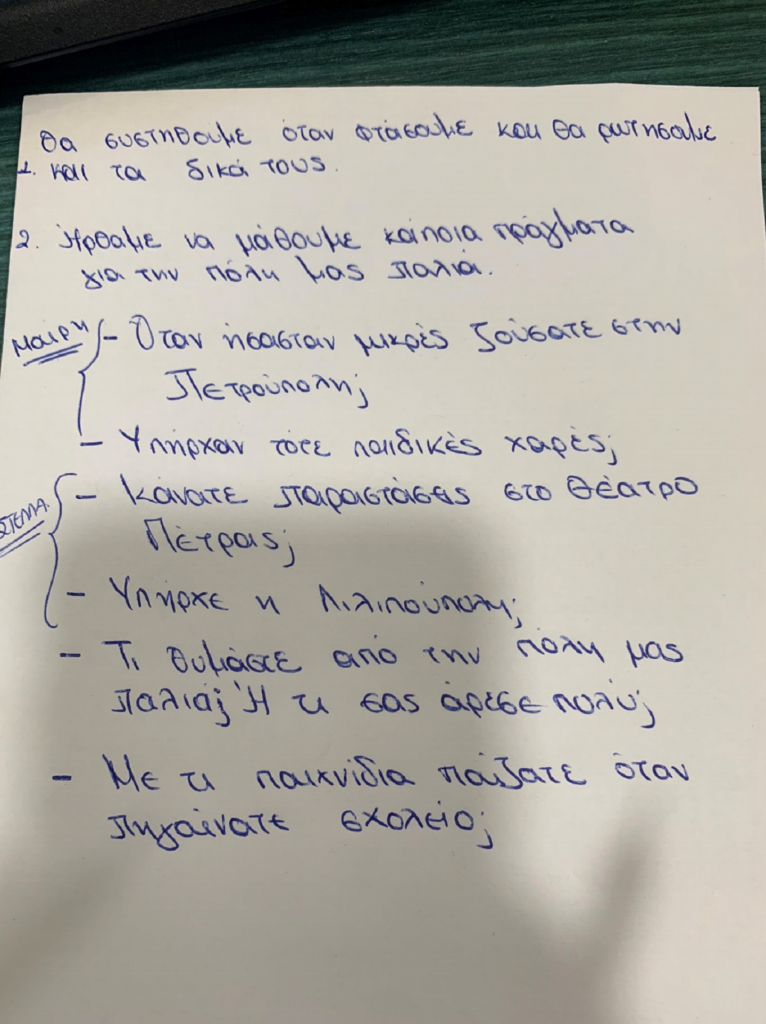 Θα συστηθούμε όταν φτάσουμε και θα ρωτήσαμε
1. και τα δικά τους.
2. Ήρθαμε να μάθουμε κάποια πράγματα
για την πόλη μας παλιά.
ΜΑΙΡΗ
- Όταν ήσασταν μικρές ζούσατε στην
Πετρούπολη;
- Υπήρχαν τότε παιδικές χαρές;
ΣΤΕΛΛΑ
- Κάνατε παραστάσεις στο Θέατρο
Πέτρας;
- Υπήρχε η Λιλιπούπολη;
- Τι θυμάστε από την πόλη μας
παλιά; Ή τι σας άρεσε πολύ;
- Με τι παιχνίδια παίζατε όταν
πηγαίνατε σχολείο;